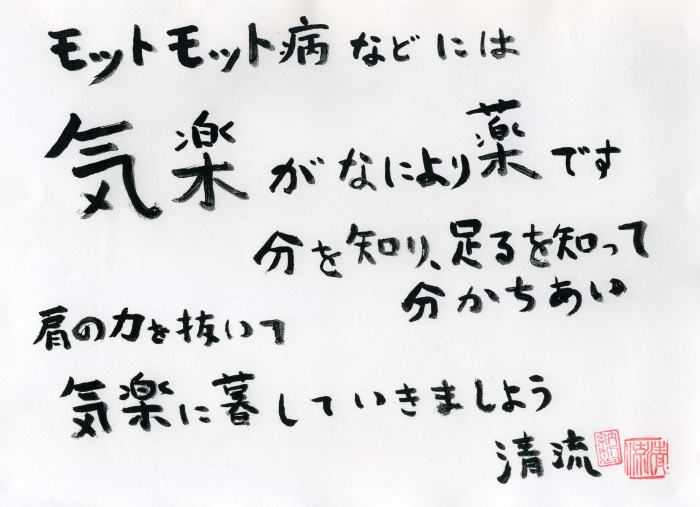 モットモット病などには
気楽がなにより薬です
分を知り、足るを知って
分かちあい
肩の力を抜いて
気楽に暮していきましよう
清流